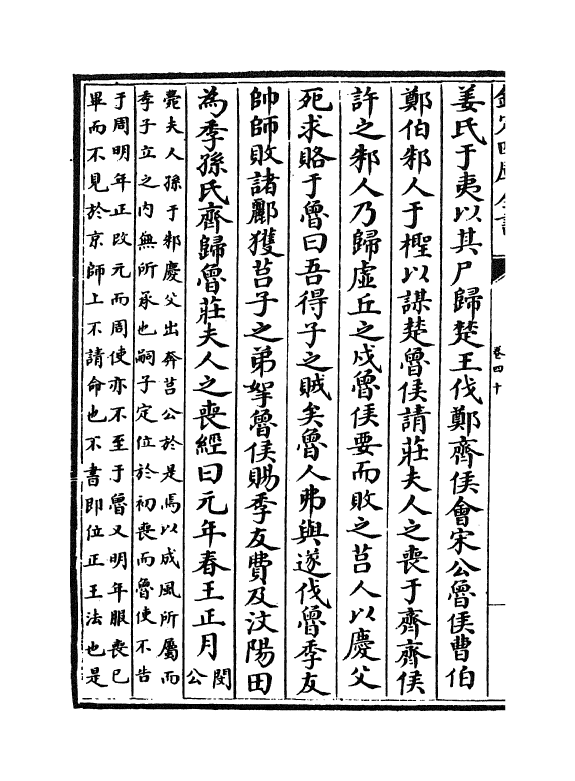 欽定四庫全書
卷四十
姜氏于夷以其尸歸楚王伐鄭齊侯會宋公魯侯曹伯
鄭伯邾人于檉以謀楚魯侯請莊夫人之喪于齊齊侯
許之邾人乃歸虛丘之戍魯侯要而敗之莒人以慶父
死求賂于魯曰吾得子之賊矣魯人弗與遂伐魯季友
帥師敗諸酈獲莒子之弟挐魯侯賜季友費及汶陽田
為季孫氏齊歸魯莊夫人之喪經曰元年春王正月閔公
薨夫人孫于邾慶父出奔莒公於是焉以成風所屬而
季子立之内無所承也嗣子定位於初喪而魯使不告
于周明年正改元而周使亦不至于魯又明年服喪已
畢而不見於京師上不請命也不書即位正王法也是